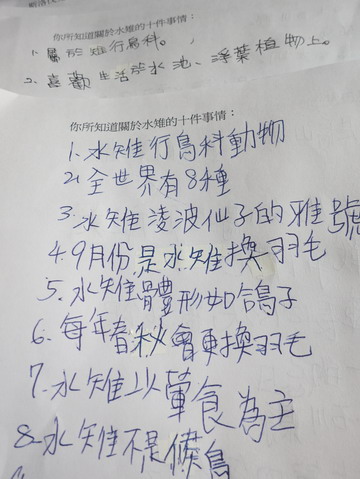 你所知道關於水雉的十件事情：
1. 屬於雉行鳥科。
2. 喜歡生活於水池、浮葉植物上。
你所知道關於水雉的十件事情：
1. 水雉行鳥科動物
2. 全世界有8種
3. 水雉凌波仙子的雅號
4. 9月份是水雉換羽毛
5. 水雉體形如鴿子
6. 每年春秋會更換羽毛
7. 水雉以葷食為主
8. 水雉不是候鳥